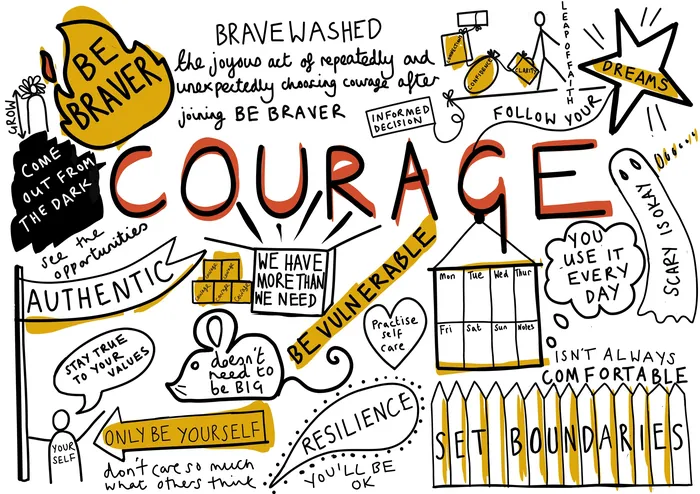 BE
BRAVER
BRAVEWASHED
the joyous act of repeatedly and
unexpectedly choosing courage after
joining BE BRAVER
CONNECTION
CONFIDENCE
CLARITY
LEAP OF FAITH
INFORMED
DECISION
FOLLOW YOUR
DREAMS
GROW
COME
OUT FROM
THE DARK
COURAGE
see the
opportunities
AUTHENTIC
courage
courage
courage
courage
courage
WE HAVE
MORE THAN
WE NEED
BE VULNERABLE
Mon Tue Wed Thur
Fri Sat Sun Notes
YOU
USE IT
EVERY
DAY
SCARY IS OKAY
STAY TRUE
TO YOUR
VALUES
YOUR
SELF
doesn't
need to
be BIG
Practise
self
care
ISN'T ALWAYS
COMFORTABLE
ONLY BE YOURSELF
don't care so much
what others think
RESILIENCE
YOU'LL BE
OK
SET BOUNDARIES